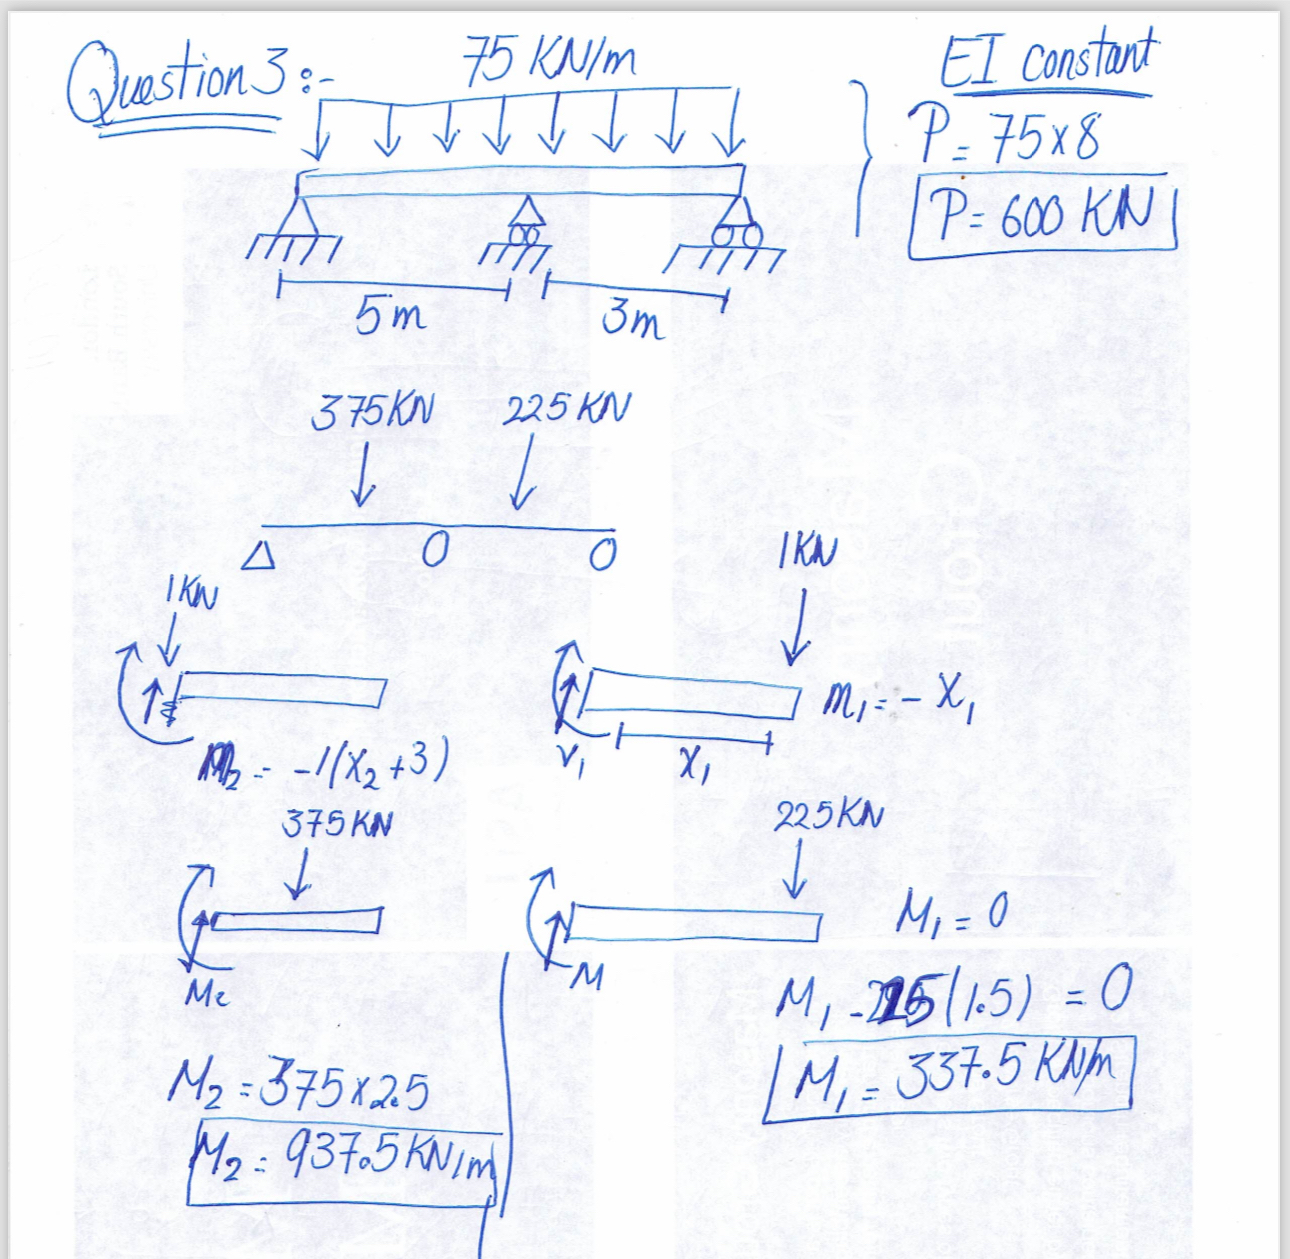 Question 3 :-
75 KN/m
EI constant
P = 75x8
P = 600 KN
5m
3m
375KN
225KN
1KN
1KN
m₁ = - X₁
V₁
X₁
m₂ = -1(X₂+3)
375KN
225KN
M₁ = 0
M₂
M
M₁ - 225(1.5) = 0
M₁ = 337.5 KN/m
M₂ = 375x2.5
M₂ = 937.5 KN/m